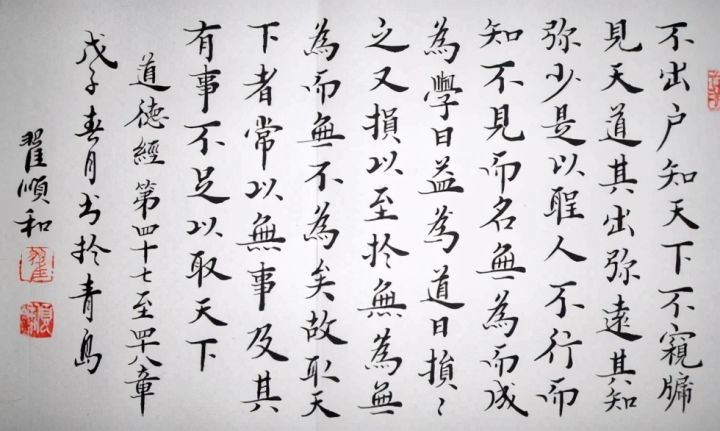 不出户知天下不窺牖
見天道其出弥遠其知
弥少是以聖人不行而
知不見而名無為而成
為學日益為道日損〻
之又損以至於無為無
為而無不為矣故取天
下者常以無事及其
有事不足以取天下
道德經第四十七至四八章
戊子春月书於青島
翟順和